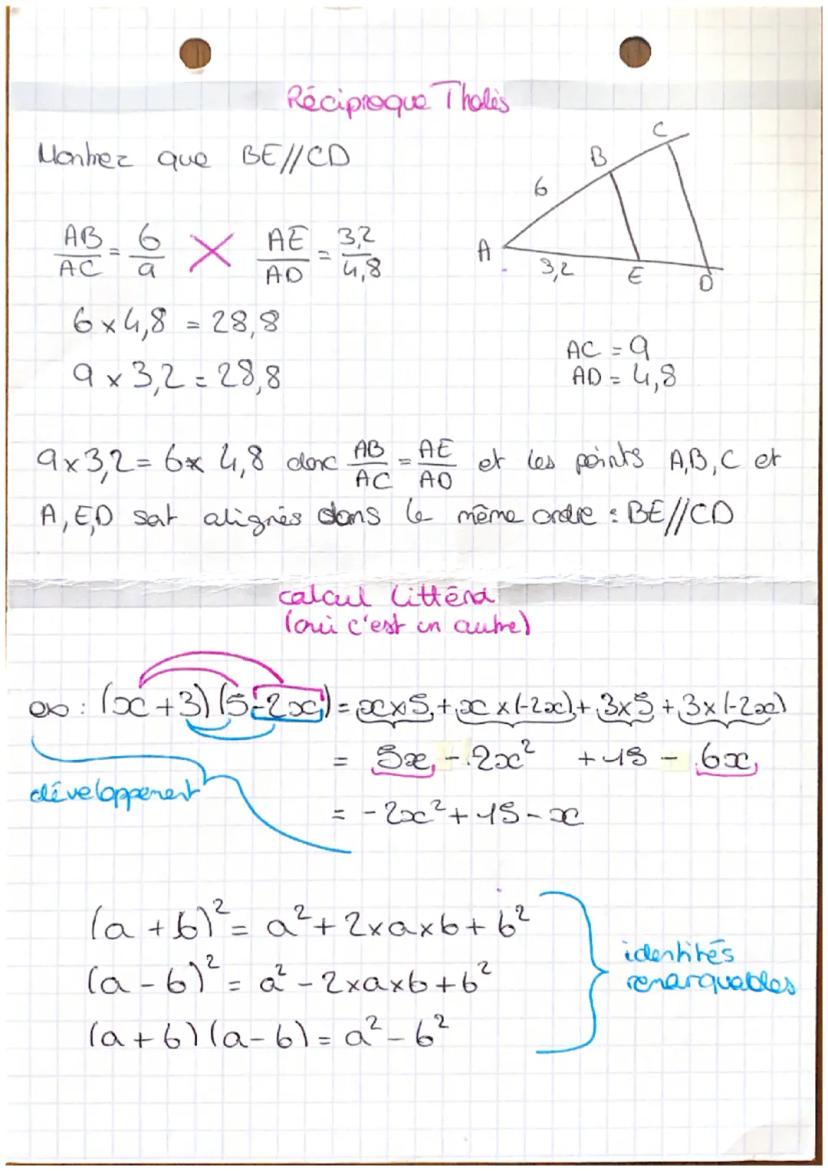 Réciproque Thalès
Montrez que BE//CD
AB/AC = 6/9 AE/AD = 3,2/4,8
6 × 4,8 = 28,8
9 × 3,2 = 28,8
A
6
B
C
3,2
E
D
AC = 9
AD = 4,8
9×3,2 = 6× 4,8 donc AB/AC = AE/AD et les points A,B,C et
A,E,D sont alignés dans le même ordre : BE//CD
calcul littéral
(oui c'est un autre)
ex : (x+3)(5-2x) = x×5 + x×(-2x) + 3×5 + 3×(-2x)
= 5x - 2x² +15 - 6x
développement
= -2x² + 15 - x
(a + b)² = a² + 2×a×b + b²
(a - b)² = a² - 2×a×b + b²
(a+b)(a-b) = a² - b²
identités
remarquables